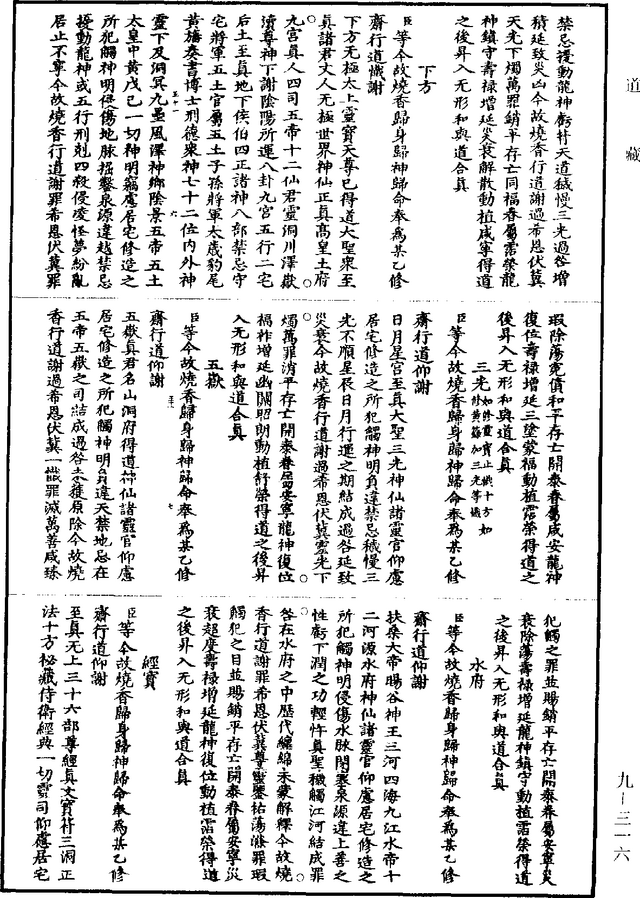 道藏
禁忌擾動龍神虧忤天道穢慢三光過咎增
積延致災凶今故燒香行道謝過希恩伏冀
天光下燭萬罪銷平存亡同福眷屬霑榮龍
神鎮守壽祿增延災衰解散動植咸寧得道
之後昇入无形和與道合真
下方
臣等今故燒香歸身歸神歸命奉為某乙修
齋行道懺謝
下方无極太上靈寶天尊已得道大聖眾至
真諸君丈人无極世界神仙正真高皇土府
九宮真人四司五帝十二仙君靈洞川澤嶽
瀆尊神下謝陰陽所運八卦九宮五行二宅
后土至真地下侯伯四正諸神八部禁忌守
宅將軍五土官屬五土子孫將軍太歲豹尾
黃旛奏書博士刑德眾神七十二位內外神
靈下及洞冥九壘風澤神鄉陰景五帝五土
太皇中黃戊己一切神明竊慮居宅修造之
所犯觸神明侵傷地脉掘鑿泉源違越禁忌
擾動龍神或五行刑剋四殺侵凌怪夢紛亂
居止不寧今故燒香行道謝罪希恩伏冀罪
瑕除蕩寃債和平存亡開泰眷屬咸安龍神
復位壽祿增延三塗蒙福動植霑榮得道之
後昇入无形和與道合真
三光如修靈寶止懺十方如
修黃籙加三光等懺
臣等今故燒香歸身歸神歸命奉為某乙修
齋行道仰謝
日月星宮至真大聖三光神仙諸靈官仰慮
居宅修造之所犯觸神明負違禁忌穢慢三
光不順星辰日月行運之期結成過咎延致
災衰今故燒香行道謝過希恩伏冀靈光下
燭萬罪消平存亡開泰眷屬安寧龍神復位
禍祚增延幽關昭朗動植舒榮得道之後昇
入无形和與道合真
五嶽
臣等今故燒香歸身歸神歸命奉為某乙修
齋行道仰謝
五嶽真君名山洞府得道神仙諸靈官仰慮
居宅修造之所犯觸神明負違天禁地忌在
五帝五嶽之司結成過咎恐獲原除今故燒
香行道謝過希恩伏冀一懺罪滅萬善咸臻
犯觸之罪並賜銷平存亡開泰眷屬安寧災
衰除蕩壽祿增延龍神鎮守動植霑榮得道
之後昇入无形和與道合真
水府
臣等今故燒香歸身歸神歸命奉為某乙修
齋行道仰謝
扶桑大帝暘谷神王三河四海九江水帝十
二河源水府神仙諸靈官仰慮居宅修造之
所犯觸神明侵傷水脉閉塞泉源違上善之
性虧下潤之功輕忤真聖穢觸江河結成罪
咎在水府之中歷代纏綿未蒙解釋今故燒
香行道謝罪希恩伏冀尊靈鑒祐蕩滌罪瑕
觸犯之目並賜銷平存亡開泰眷屬安寧災
衰超度壽祿增延龍神復位動植霑榮得道
之後昇入无形和與道合真
經寶
臣等今故燒香歸身歸神歸命奉為某乙修
齋行道仰謝
至真无上三十六部尊經真文寶符三洞正
法十方秘藏侍衛經典一切靈司仰慮居宅
九—三一六